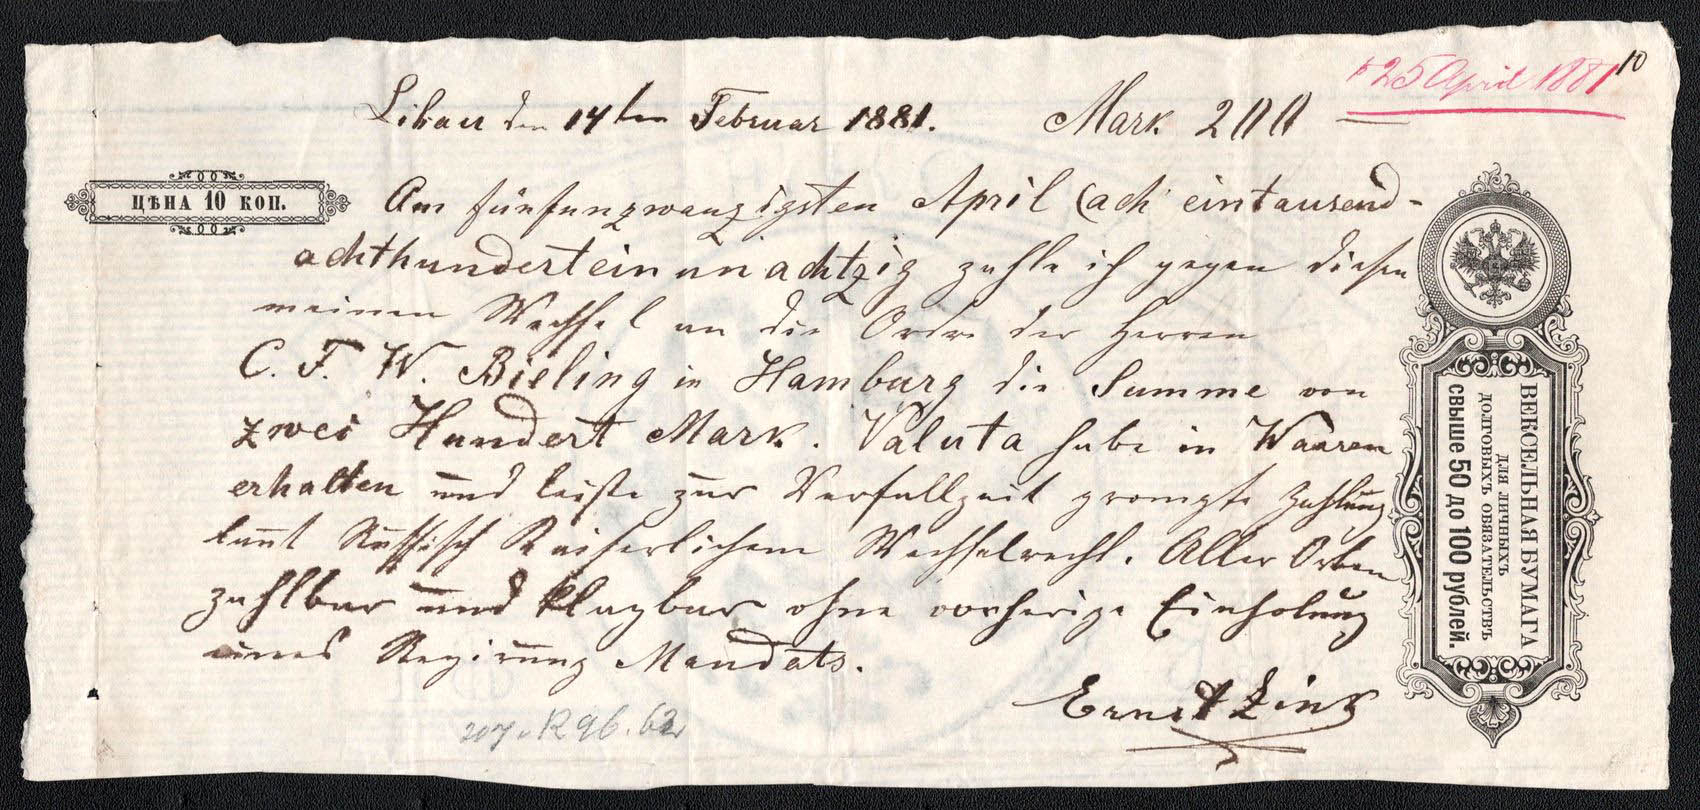 25 April 1881
10
Libau den 14ten Februar 1881. Mark 200
ЦѢНА 10 КОП.
Am fünfunzwanzigsten April eintausend-
achthunderteinunachtzig zahle ich gegen diesen
meinen Wechsel an die Ordre der Herren
C. F. W. Bieling in Hamburg die Summe von
zwei Hundert Mark. Valuta habe in Waaren
erhalten und leiste zur Verfallzeit prompte Zahlung
laut Russisch Kaiserlichem Wechselrecht. Aller Orten
zahlbar und klagbar ohne vorherige Einholung
eines Regirung Mandats.
Ernst Zink
207. R 96. 62
ВЕКСЕЛЬНАЯ БУМАГА
ДЛЯ ЛИЧНЫХЪ
ДОЛГОВЫХЪ ОБЯЗАТЕЛЬСТВЪ
свыше 50 до 100 рублей.